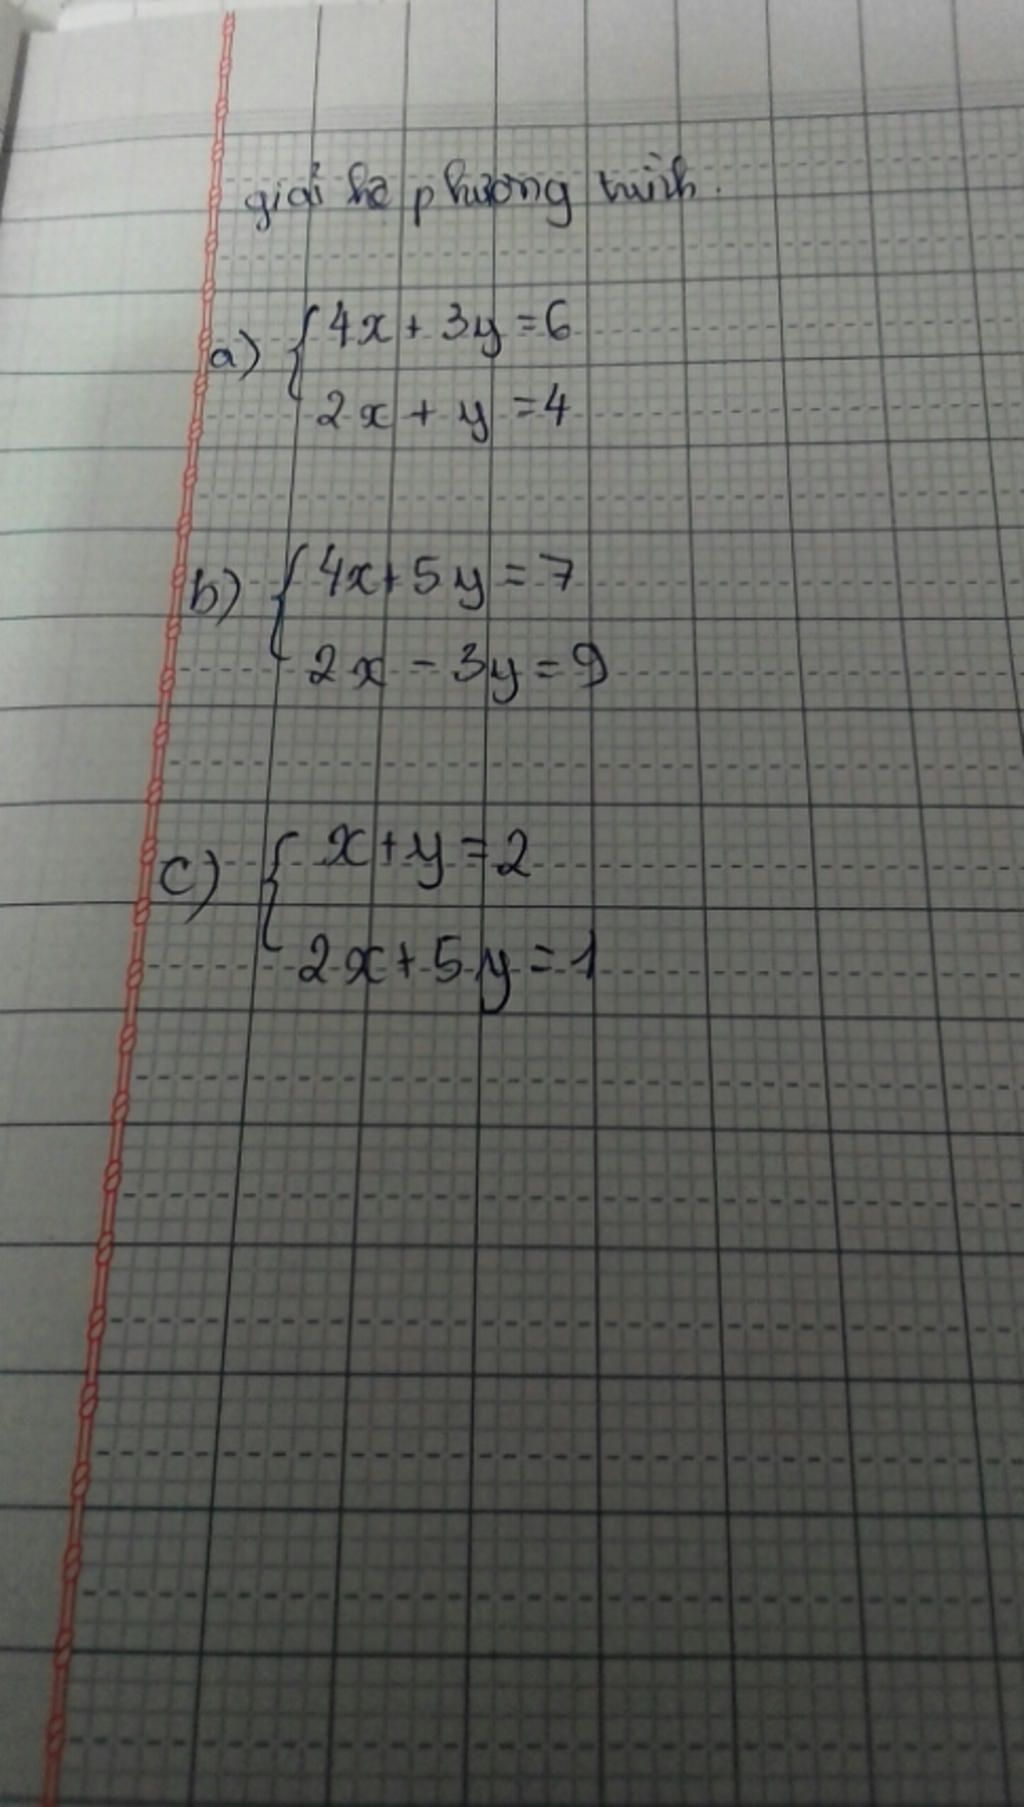 giải hệ phương trình.
a) { 4x + 3y = 6
2x + y = 4
b) { 4x + 5y = 7
2x - 3y = 9
c) { x + y = 2
2x + 5y = 1